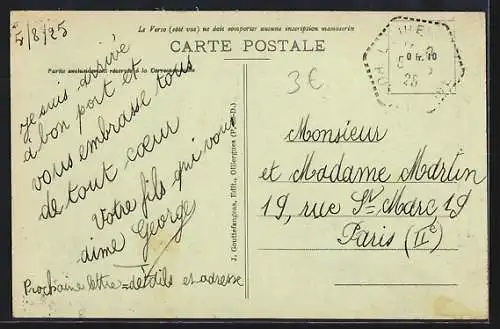 5/8/25
Le Verso (côté vue) ne doit comporter aucune inscription manuscrite
CARTE POSTALE
Partie exclusivement réservée à la Correspondance
3€
0 fr. 10
Je suis arrivé
à bon port et
vous embrasse tous
de tout cœur
Votre fils qui vous
aime George
Prochaine lettre = détails et adresse
J. Gouttefangeas, Édit., Olliergues (P.-de-D.)
Monsieur
et Madame Martin
19, rue St. Marc, 19
Paris (IIe)